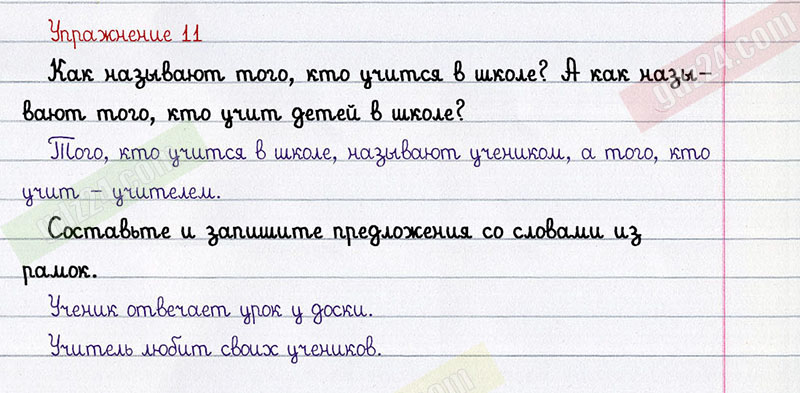 Упражнение 11
Как называют того, кто учится в школе? А как назы-
вают того, кто учит детей в школе?
Того, кто учится в школе, называют учеником, а того, кто
учит – учителем.
Составьте и запишите предложения со словами из
рамок.
Ученик отвечает урок у доски.
Учитель любит своих учеников.